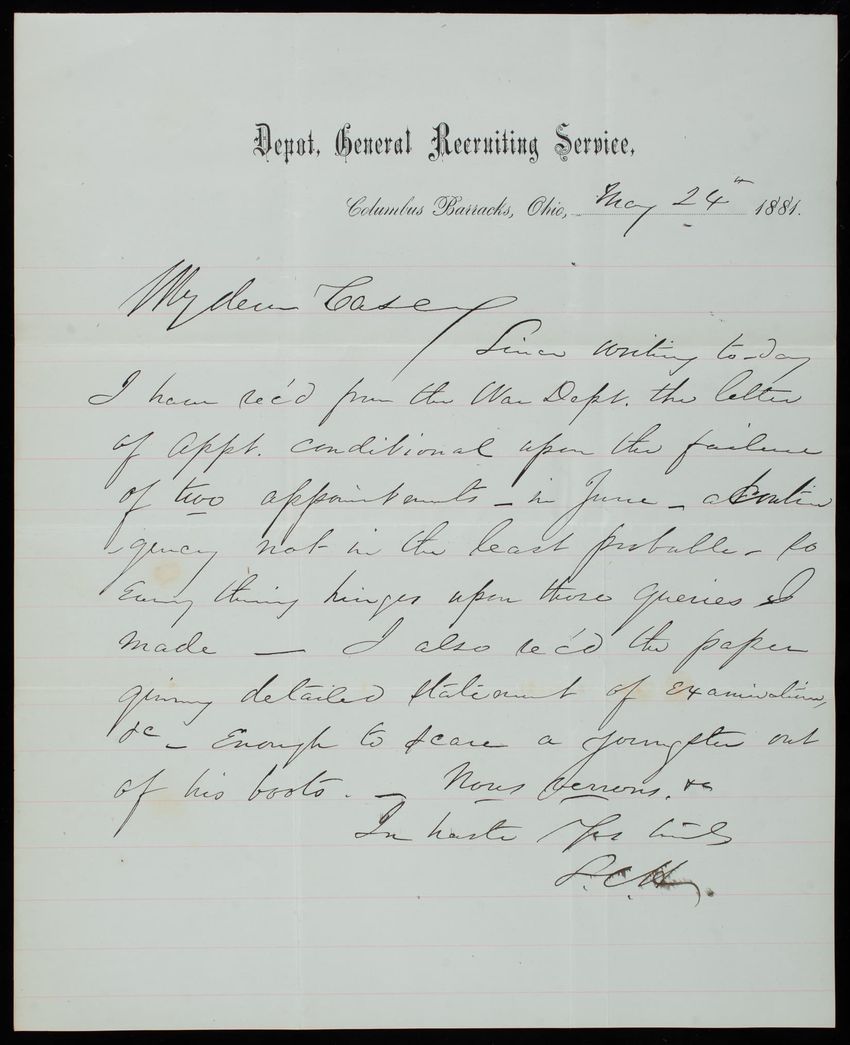 Depot, General Recruiting Service,
Columbus Barracks, Ohio, May 24th 1881.
My dear Casey
Since writing to-day
I have rec'd from the War Dept. the letter
of appt. conditional upon the failure
of two appointments – in June – a contin
-gency not in the least probable – so
Every thing hinges upon those queries I
made — I also rec'd the paper
giving detailed statement of Examination,
&c – Enough to scare a youngster out
of his boots. – Nous verrons, &c
In haste Yrs truly